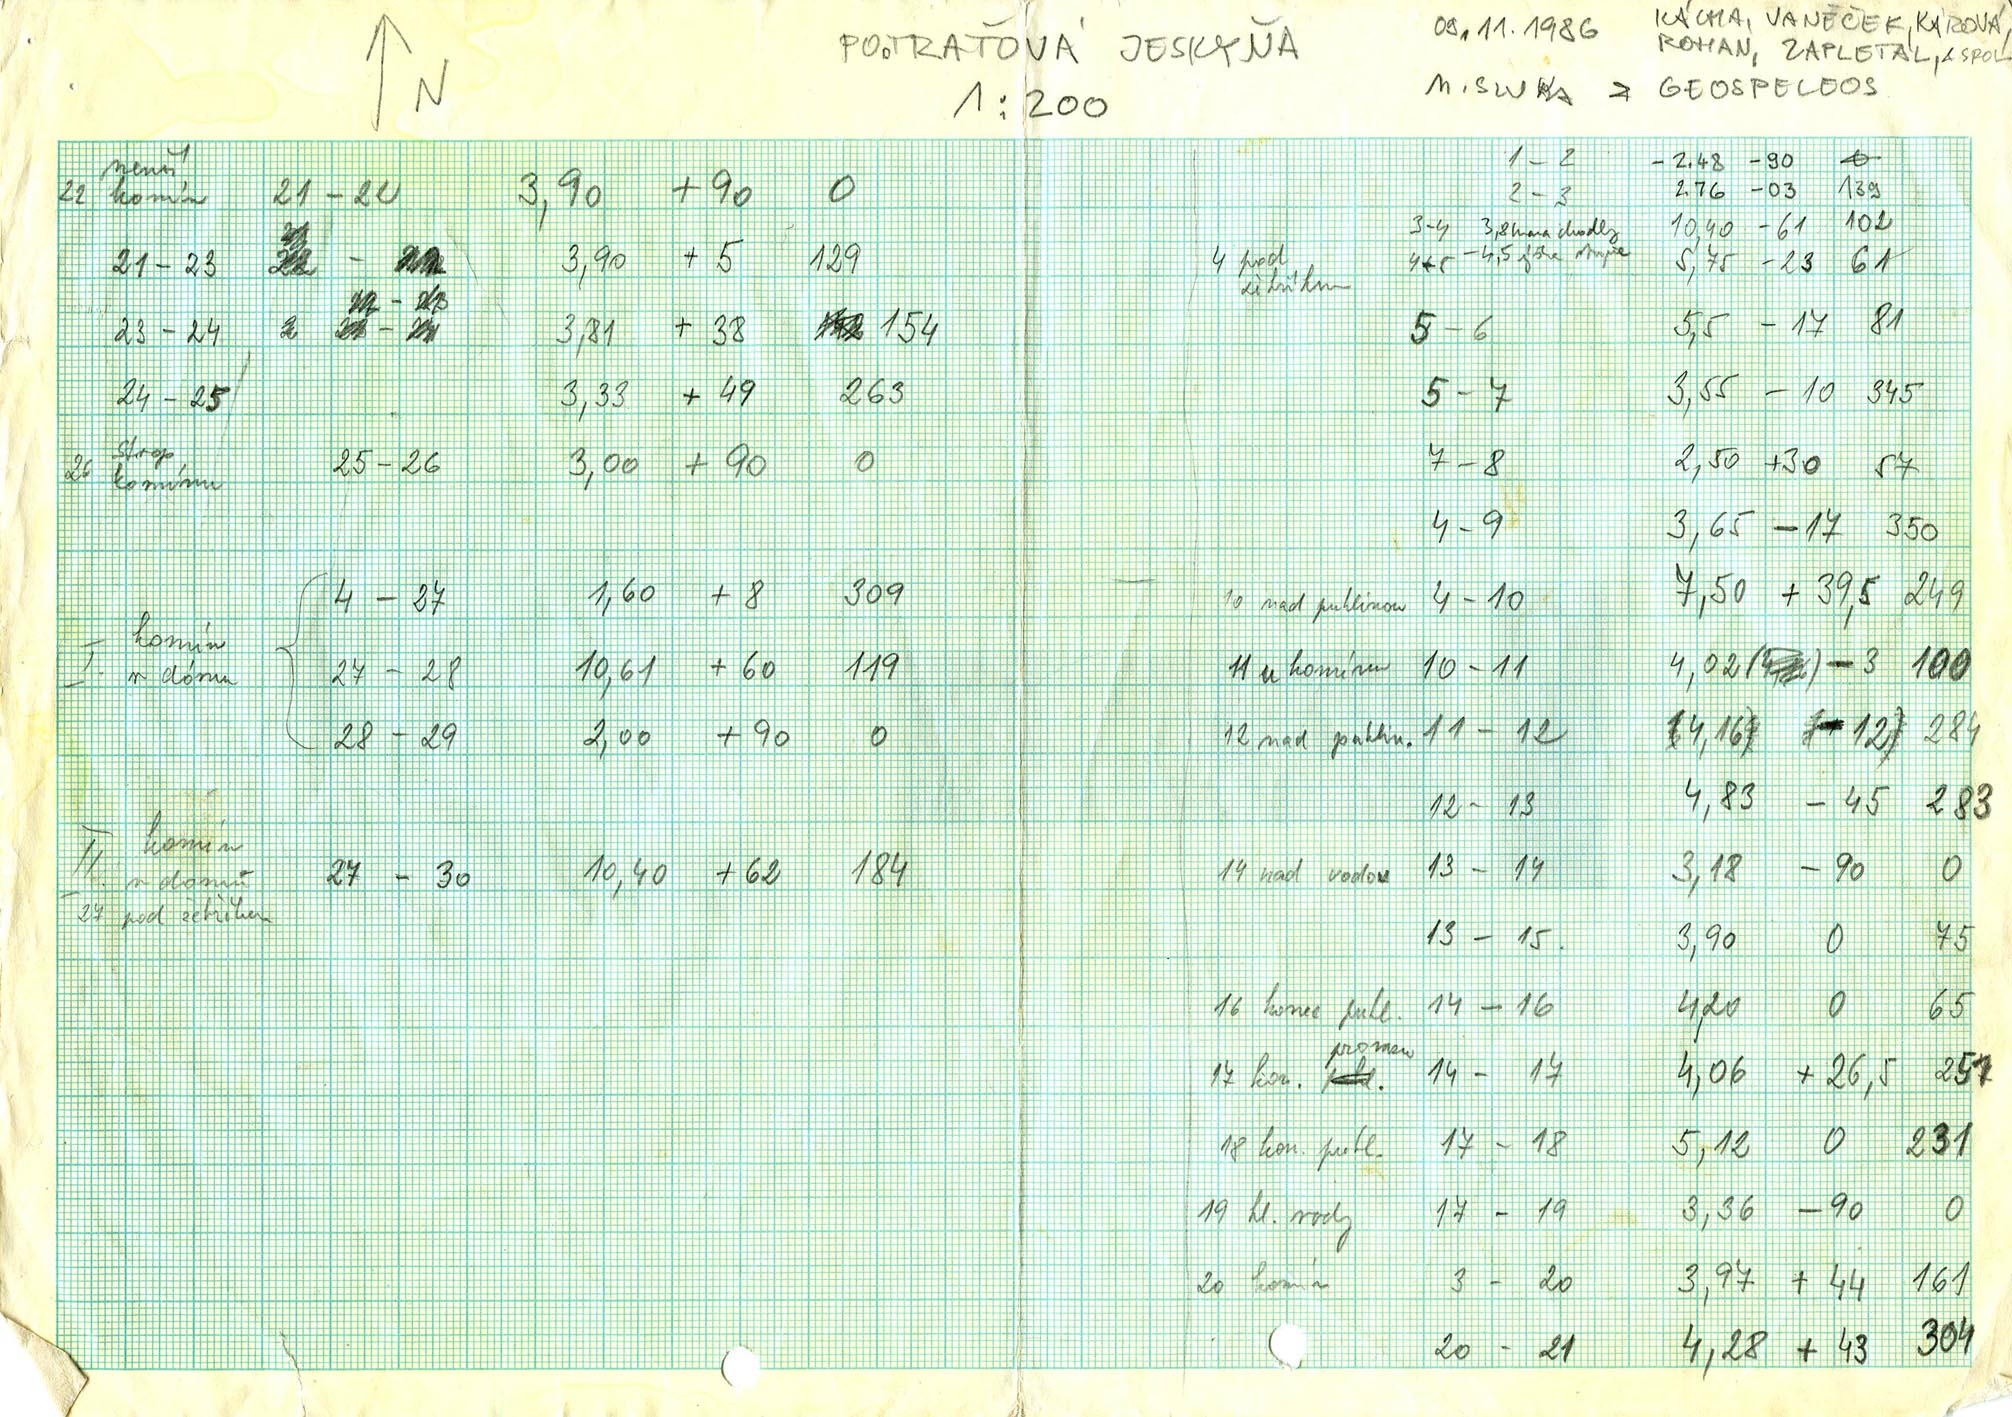 N
POTRAŤOVÁ JESKYŇA
1:200
09.11.1986
KÁCHA, VANĚČEK, KÁROVÁ,
ROHAN, ZAPLETAL, & SPOL.
M. SLUKA
GEOSPELEOS
22 menší komín 21 - 22 3,90 +90 0
21 - 23 3,90 +5 129
23 - 24 3,81 +38 154
24 - 25 3,33 +49 263
26 strop komínu 25-26 3,00 +90 0
4 - 27 1,60 +8 309
I. komín v dómu 27 - 28 10,61 +60 119
28 - 29 2,00 +90 0
II. komín v dómu 27 - 30 10,40 +62 184
27 pod žebříkem
1 - 2 -2.48 -90 0
2 - 3 2.76 -03 139
3-4 10,40 -61 102
4 pod žebříkem 4-5 5,75 -23 61
5 - 6 5,5 -17 81
5 - 7 3,55 -10 345
7 - 8 2,50 +30 57
4 - 9 3,65 -17 350
10 nad puklinou 4 - 10 7,50 +39,5 249
11 u komínu 10 - 11 4,02 -3 100
12 nad puklin. 11 - 12 (4,16) (-12) 284
12 - 13 4,83 -45 283
14 nad vodou 13 - 14 3,18 -90 0
13 - 15. 3,90 0 75
16 konec pukl. 14 - 16 4,20 0 65
17 kon. 14 - 17 4,06 +26,5 257
18 kon. pukl. 17 - 18 5,12 0 231
19 hl. vody 17 - 19 3,36 -90 0
20 komín 3 - 20 3,97 +44 161
20 - 21 4,28 +43 304